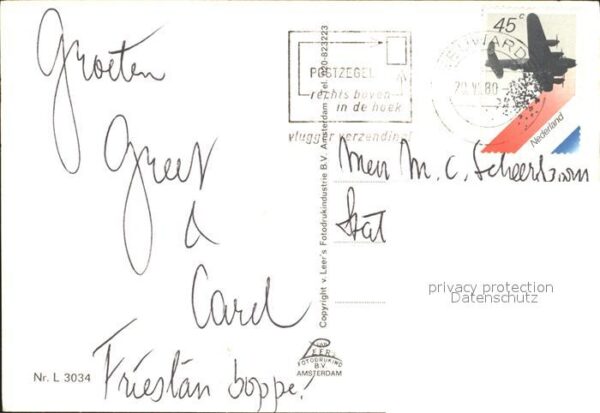 Groeten
Greet
&
Carel
Frieslân boppe!
Nr. L 3034
Copyright v. Leer's Fotodrukindustrie B.V. Amsterdam Tel. 020-823223
VAN
LEER'S
FOTODRUKIND
B.V.
AMSTERDAM
POSTZEGEL
rechts boven
in de hoek
vlugger verzending!
LEEUWARDEN
80
45 c
Nederland
Mevr M. C. Scheerboom
Stat
privacy protection
Datenschutz